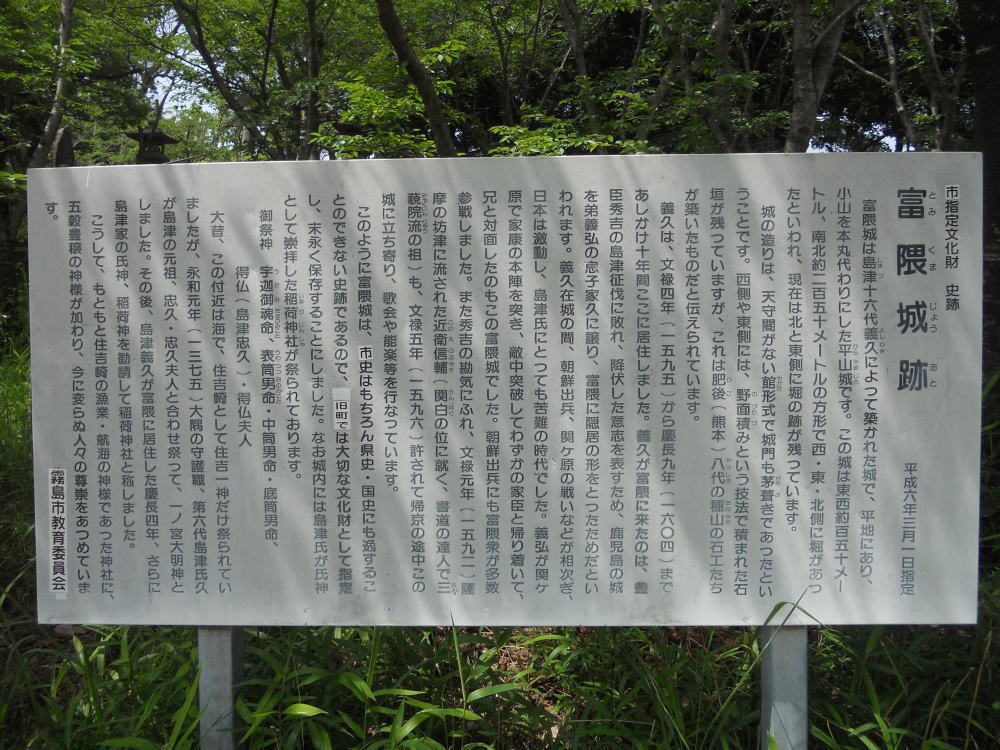 市指定文化財 史跡
富隈城跡
とみくまじょうあと
平成六年三月一日指定
富隈城は島津十六代義久によって築かれた城で、平地にあり、
小山を本丸代わりにした平山城です。この城は東西約百五十メー
トル、南北約二百五十メートルの方形で西・東・北側に堀があっ
たといわれ、現在は北と東側に堀の跡が残っています。
城の造りは、天守閣がない館形式で城門も茅葺きであったとい
うことです。西側や東側には、野面積みという技法で積まれた石
垣が残っていますが、これは肥後（熊本）八代の種山の石工たち
が築いたものだと伝えられています。
義久は、文禄四年（一五九五）から慶長九年（一六〇四）まで
あしかけ十年間ここに居住しました。義久が富隈に来たのは、豊
臣秀吉の島津征伐に敗れ、降伏した意志を表すため、鹿児島の城
を弟義弘の息子家久に譲り、富隈に隠居の形をとったためだとい
われます。義久在城の間、朝鮮出兵、関ヶ原の戦いなどが相次ぎ、
日本は激動し、島津氏にとっても苦難の時代でした。義弘が関ヶ
原で家康の本陣を突き、敵中突破してわずかの家臣と帰り着いて、
兄と対面したのもこの富隈城でした。朝鮮出兵にも富隈衆が多数
参戦しました。また秀吉の勘気にふれ、文禄元年（一五九二）薩
摩の坊津に流された近衛信輔（関白の位に就く、書道の達人で三
藐院流の祖）も、文禄五年（一五九六）許されて帰京の途中この
城に立ち寄り、歌会や能楽等を行なっています。
このように富隈城は、市史はもちろん県史・国史にも逸するこ
とのできない史跡であるので、旧町では大切な文化財として指定
し、末永く保存することにしました。なお城内には島津氏が氏神
として崇拝した稲荷神社が祭られております。
御祭神 宇迦御魂命、表筒男命・中筒男命・底筒男命、
得仏（島津忠久）・得仏夫人
大昔、この付近は海で、住吉崎として住吉一神だけ祭られてい
ましたが、永和元年（一三七五）大隅の守護職、第六代島津氏久
が島津の元祖、忠久・忠久夫人と合わせ祭って、一ノ宮大明神と
しました。その後、島津義久が富隈に居住した慶長四年、さらに
島津家の氏神、稲荷神を勧請して稲荷神社と称しました。
こうして、もともと住吉崎の漁業・航海の神様であった神社に、
五穀豊穣の神様が加わり、今に変らぬ人々の尊崇をあつめていま
す。
霧島市教育委員会